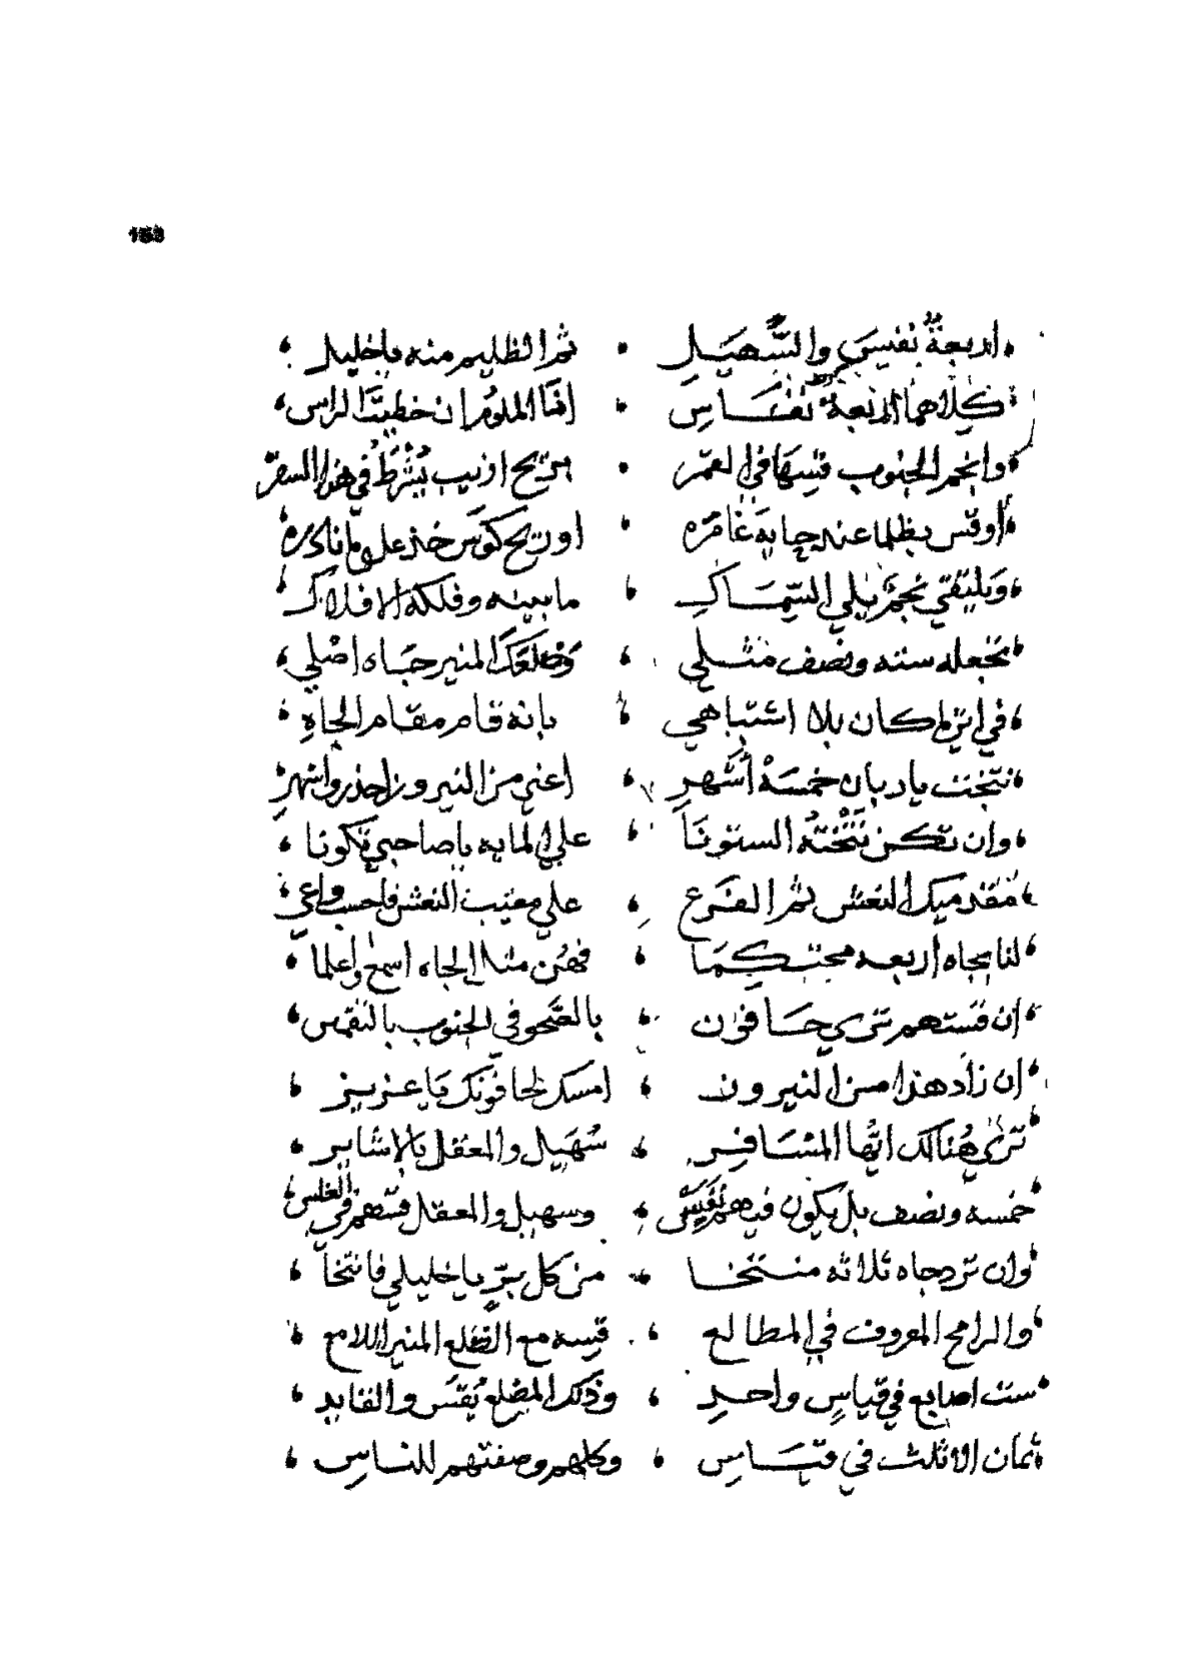 153
اربعةٌ نفيسَ والسُّهَيلِ ثم الظليم منه ياخليل
كلاهما اربعة نفَاسِ افنا الملوم ان خطيت الراس
وانجم الجنوب قسها في العمر بريح ازيب بشرط في هذا السفر
اوقس بظلما عند جاية غامره او ريح كوس خذ على
ويلتقي نجم يلي السِّمَاكِ ما بينه وفلكة الافلاك
تجعله سته ونصف مثلي المنير جاه اصلي
في اثر كان بلا اشتباهي بانه قام مقام الجاهِ
نتخت ياربان خمسة أشهرِ اعني من النيروز احذر واشهرِ
وان تكن نتخته الستونا على المايه ياصاحبي تكونا
فقد ميك النعش ثم الفرع على مغيب النعش فاحسب واعي
لنا بجاه أربعه محتكمَا فهُن مثل الجاه اسمع واعلما
إن قستهم ترى حسا فون بالصَّحو في الجنوب
ان زاد هذا من النيرون امسك لحافونك يا عزيز
ترى هُنالك ايُّها المسَافرِ سُهَيل والمعقل بالاشاير
خمسه ونصف بل يكون فيهم نُفَيسَ وسهيل والمعقل قسهم في الغلس
وان ترد جاه ثلاثه منتخا من كل برٍّ يا خليلي فانتخا
والرامح المعروف في المطالع قيسه مع الضلع المنير اللامع
ست اصابع في قياسٍ واحدِ وذلك الضلع يُقَس والفايد
ثمان الا ثلث في قيَاسِ وكلهم وصفتهم للناسِ